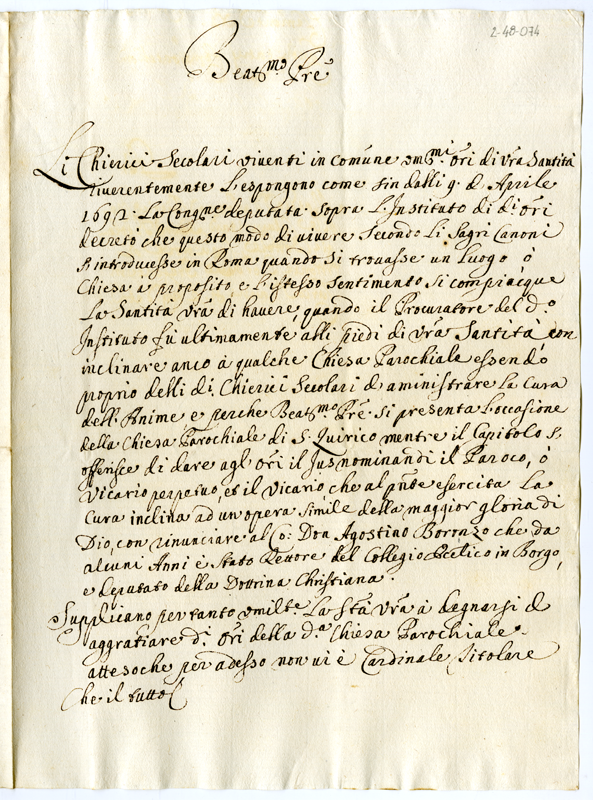 2-48-074
Beatmo Pre
Li Chierici Secolari viventi in comune um.mi ori di Vra Santità
riverentemente l'espongono come sin dalli 9. d'Aprile
1692. La Congne deputata sopra l'Instituto di di ori
decretò che questo modo di vivere secondo li Sagri Canoni
s'introducesse in Roma quando si trovasse un luogo ò
Chiesa à proposito e l'istesso sentimento si compiacque
La Santità Vra di havere, quando il Procuratore del do
Instituto fù ultimamente alli piedi di Vra Santità con
inclinare anco à qualche Chiesa Parochiale essendo
proprio delli di Chierici Secolari d'aministrare la Cura
dell'Anime e perche Beatmo Pre si presenta l'occasione
della Chiesa Parochiale di S. Quirico mentre il Capitolo s'
offerisce di dare agl'ori il Jus nominandi il Paroco, ò
Vicario perpetuo, et il Vicario che al pnte esercita la
Cura inclina ad un'opera simile della maggior gloria di
Dio, con rinunciare al Co: Don Agostino Boronzo che da
alcuni Anni è stato Rettore del Collegio Ecclico in Borgo,
e deputato della Dottrina Christiana.
Supplicano pertanto umilte La Stà Vra à degnarsi d'
aggratiare di ori della da Chiesa Parochiale.
attesoche per adesso non vi è Cardinale Titolare
Che il tutto